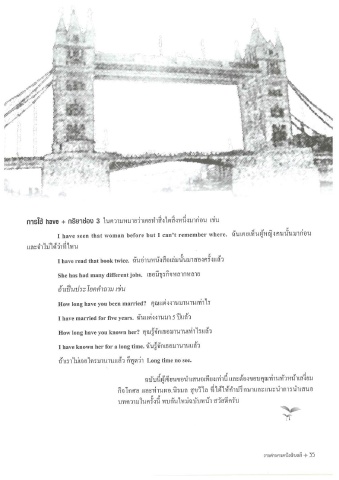 การใช้ have + กริยาช่อง 3 ในความหมายว่าเคยทำสิ่งใดสิ่งหนึ่งมาก่อน เช่น
I have seen that woman before but I can't remember where. ฉันเคยเห็นผู้หญิงคนนั้นมาก่อน
และจำไม่ได้ว่าที่ไหน
I have read that book twice. ฉันอ่านหนังสือเล่มนั้นมาสองครั้งแล้ว
She has had many different jobs. เธอมีธุรกิจหลากหลาย
ถ้าเป็นประโยคคำถาม เช่น
How long have you been married? คุณแต่งงานมานานเท่าไร
I have married for five years. ฉันแต่งงานมา 5 ปีแล้ว
How long have you known her? คุณรู้จักเธอมานานเท่าไรแล้ว
I have known her for a long time. ฉันรู้จักเธอมานานแล้ว
ถ้าเราไม่เจอใครมานานแล้ว ก็พูดว่า Long time no see.
ฉบับนี้ผู้เขียนขอนำเสนอเพียงเท่านี้ และต้องขอบคุณท่านหัวหน้าเสงี่ยม
กิจโกศล และท่านผอ.นิรมล สุขวิไล ที่ได้ให้คำปรึกษาและแนะนำการนำเสนอ
บทความในครั้งนี้ พบกันใหม่ฉบับหน้า สวัสดีครับ
35